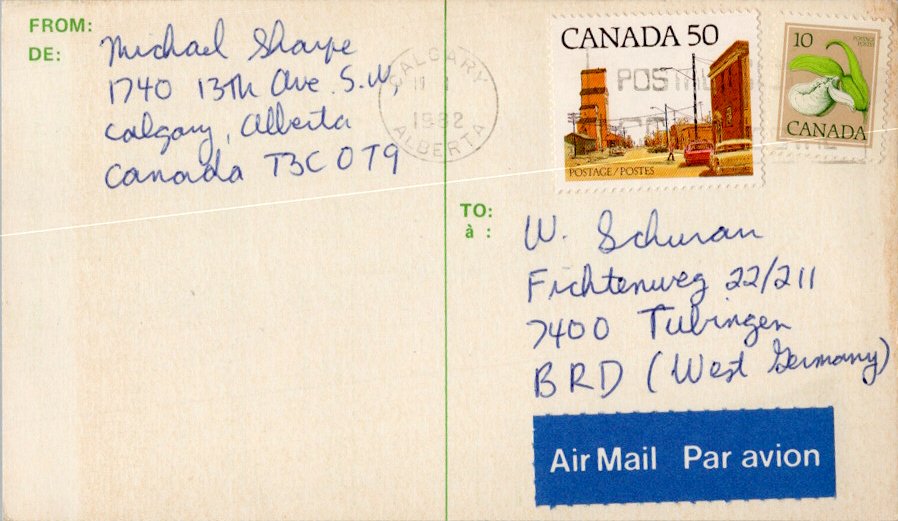 FROM:
DE:
Michael Sharpe
1740 13th Ave. S.W,
Calgary, Alberta
Canada T3C 0T9
CALGARY
1982
ALBERTA
CANADA 50
POSTAGE/POSTES
10
POSTAGE
POSTES
CANADA
TO:
à :
W. Schwan
Fichtenweg 22/211
7400 Tubingen
BRD (West Germany)
Air Mail Par avion